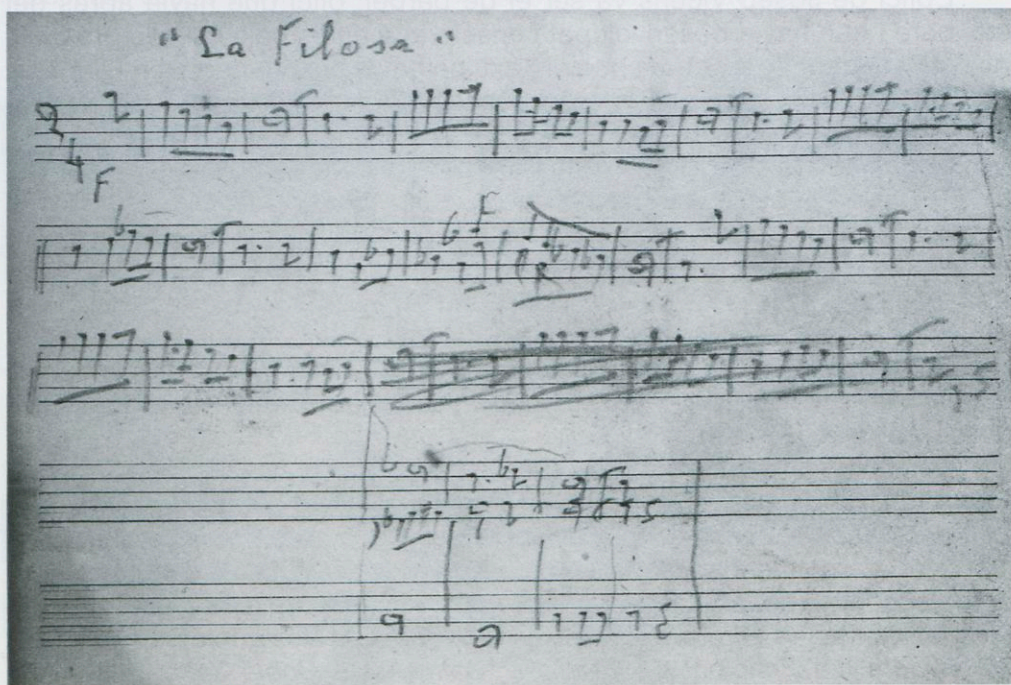 "La Filosa"
2
4
F
F